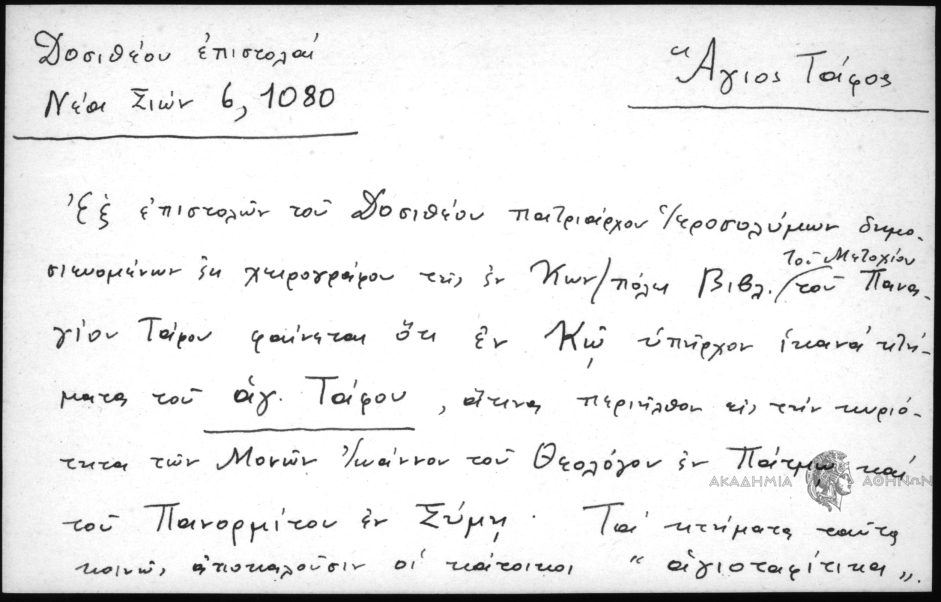 Δοσιθέου ἐπιστολαί
Νέα Σιών 6, 1080
Ἅγιος Τάφος
Ἐξ ἐπιστολῶν τοῦ Δοσιθέου πατριάρχου Ἱεροσολύμων δημο-
σιευομένων ἐκ χειρογράφου τῆς ἐν Κων/πόλει Βιβλ. / τοῦ Μετοχίου τοῦ Πανα-
γίου Τάφου φαίνεται ὅτι ἐν Κῷ ὑπῆρχον ἱκανά κτή-
ματα τοῦ ἁγ. Τάφου, ἅτινα περιῆλθον εἰς τήν κυριό-
τητα τῶν Μονῶν Ἰωάννου τοῦ Θεολόγου ἐν Πάτμῳ καί
τοῦ Πανορμίτου ἐν Σύμῃ. Τά κτήματα ταῦτα
κοινῶς ἀποκαλοῦσιν οἱ κάτοικοι "ἁγιοταφίτικα".
ΑΚΑΔΗΜΙΑ ΑΘΗΝΩΝ